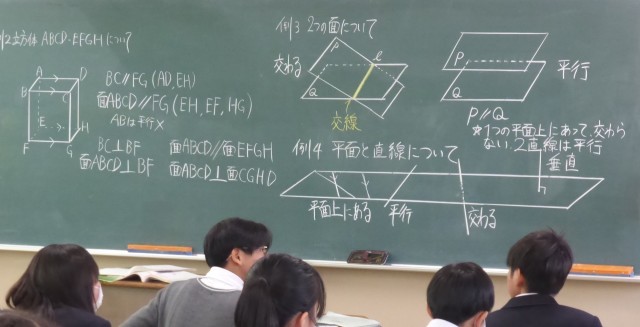 例2 立方体 ABCD-EFGHについて
A
D
B
C
E
H
F
G
BC∥FG (AD, EH)
面ABCD∥FG (EH, EF, HG)
ABは平行×
BC⊥BF
面ABCD⊥BF
面ABCD∥面EFGH
面ABCD⊥面CGHD
例3 2つの面について
交わる
P
ℓ
Q
交線
P
Q
平行
P∥Q
*1つの平面上にあって、交わら
ない2直線は平行
例4 平面と直線について
平面上にある
平行
交わる
垂直